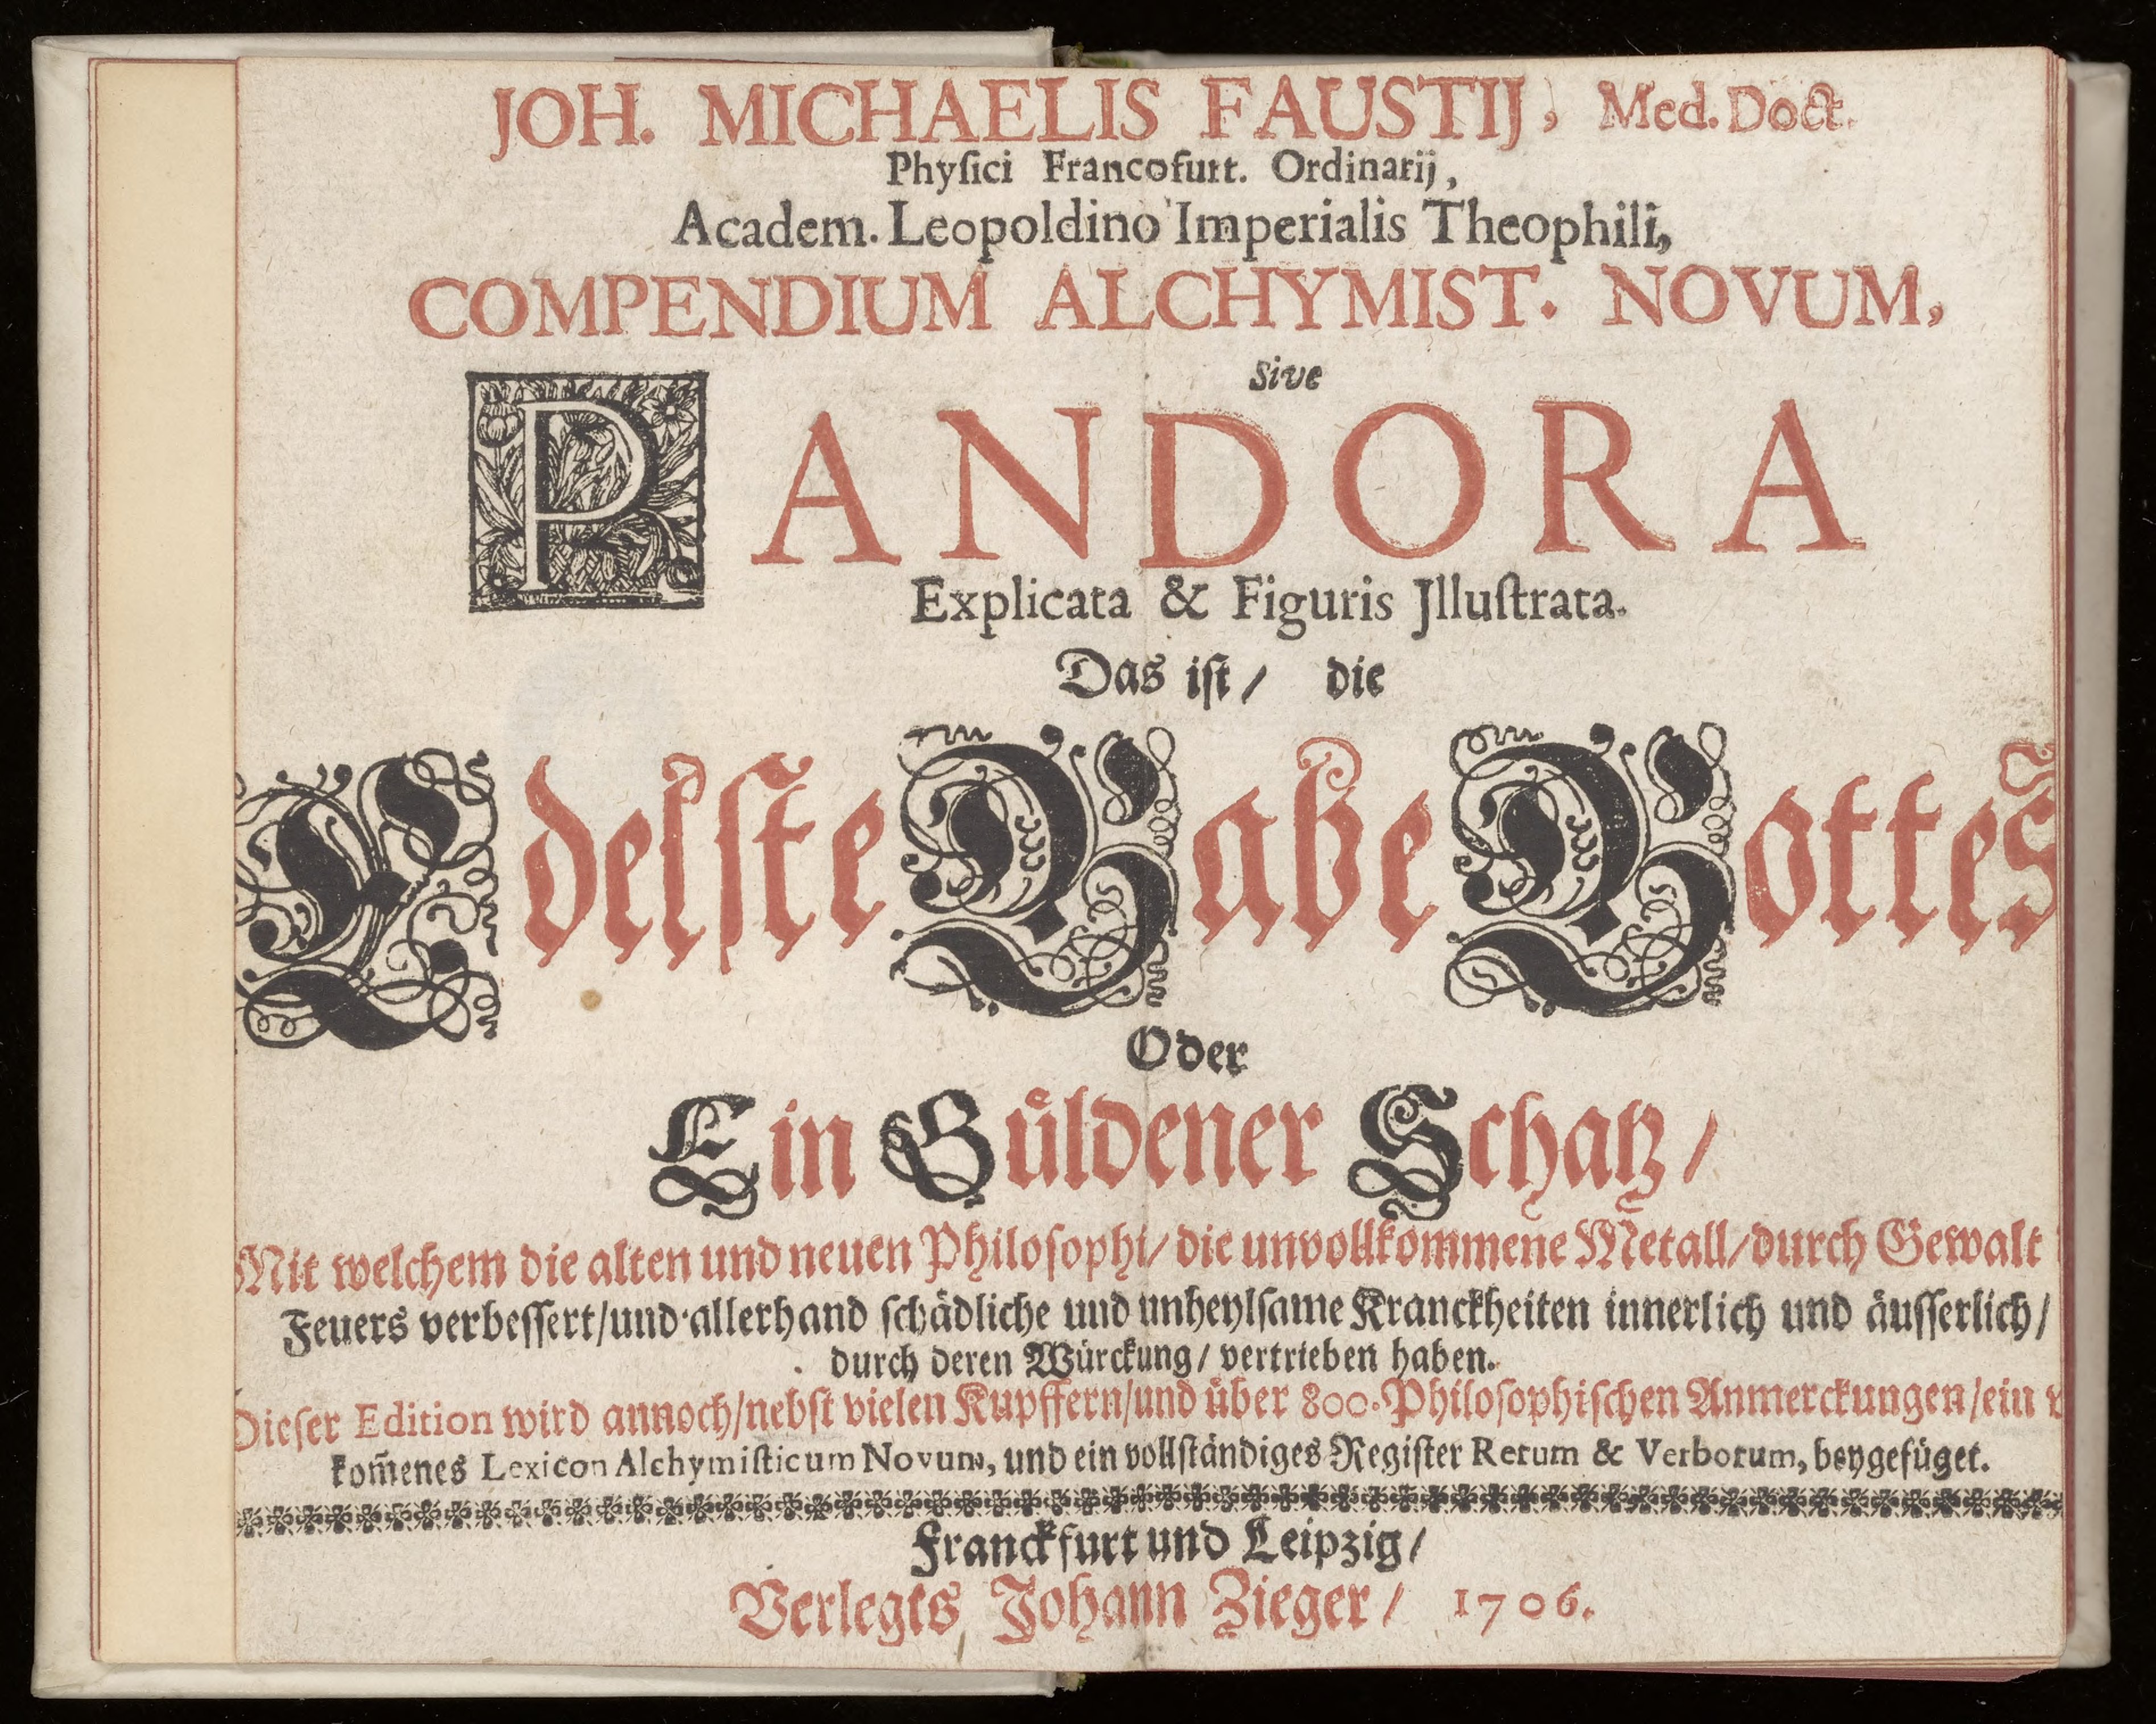 JOH. MICHAELIS FAUSTIJ, Med. Doct.
Phyſici Francofurt. Ordinarij,
Academ. Leopoldino Imperialis Theophili,
COMPENDIUM ALCHYMIST. NOVUM,
Sive
PANDORA
Explicata & Figuris Jlluſtrata.
Das iſt / die
Edelſte Gabe Gottes
Oder
Ein Guͤldener Schatz /
Mit welchem die alten und neuen Philoſophi / die unvollkommene Metall / durch Gewalt
Feuers verbeſſert / und allerhand ſchaͤdliche und unheylſame Kranckheiten innerlich und aͤuſſerlich /
durch deren Wuͤrckung / vertrieben haben.
Dieſer Edition wird annoch / nebſt vielen Kupffern / und uͤber 800. Philoſophiſchen Anmerckungen / ein
kom̃enes Lexicon Alchymiſticum Novum, und ein vollſtaͤndiges Regiſter Rerum & Verborum, beygefuͤget.
Franckfurt und Leipzig /
Verlegts Johann Zieger / 1706.